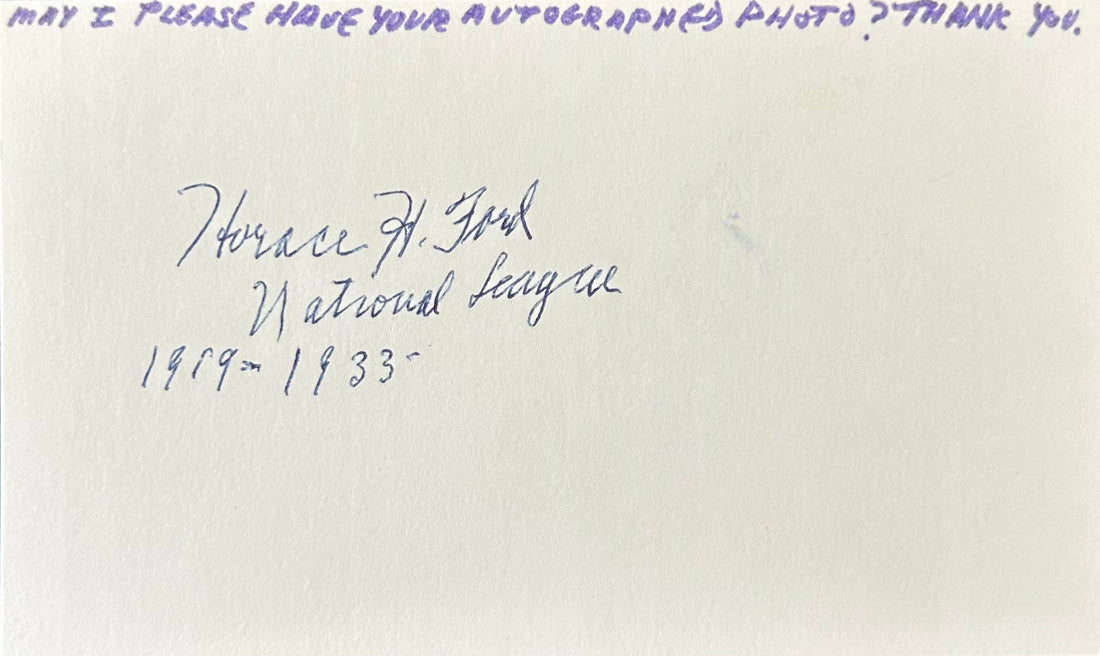 MAY I PLEASE HAVE YOUR AUTOGRAPHED PHOTO? THANK YOU.
Horace H. Ford
National League
1919-1933-